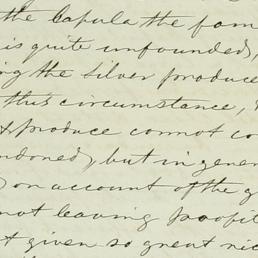 the Capula the fam
is quite unfounded,
ing the silver produce
this circumstance,
& produce cannot co
ndoned, but in gener
on account of the g
not leaving profit
t given so great ric